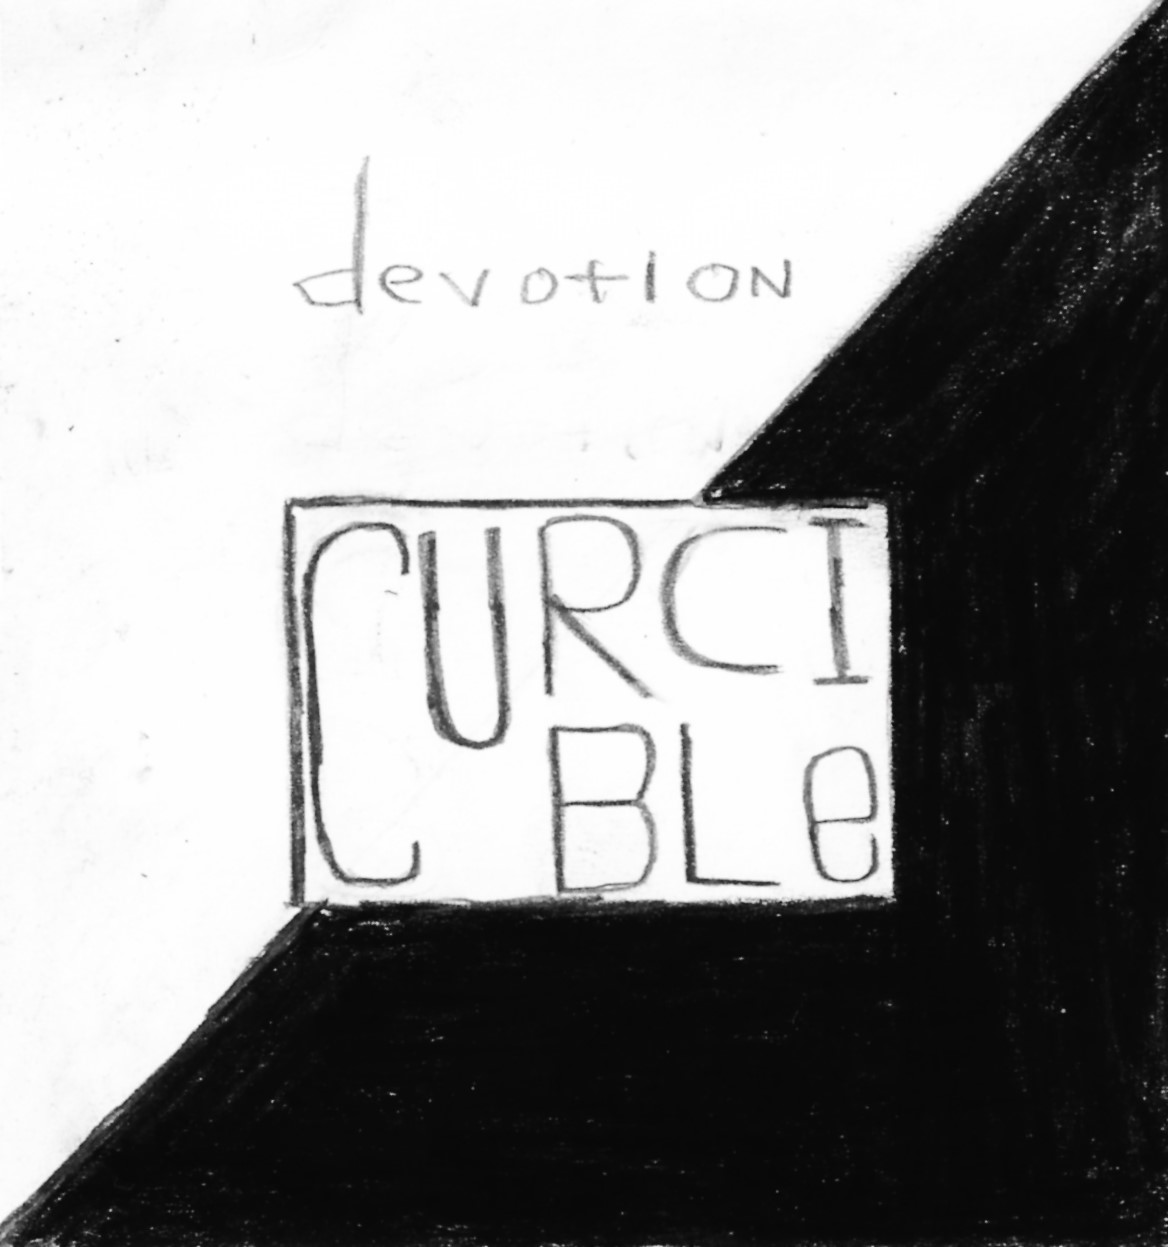 devotion
CURCI
BLe